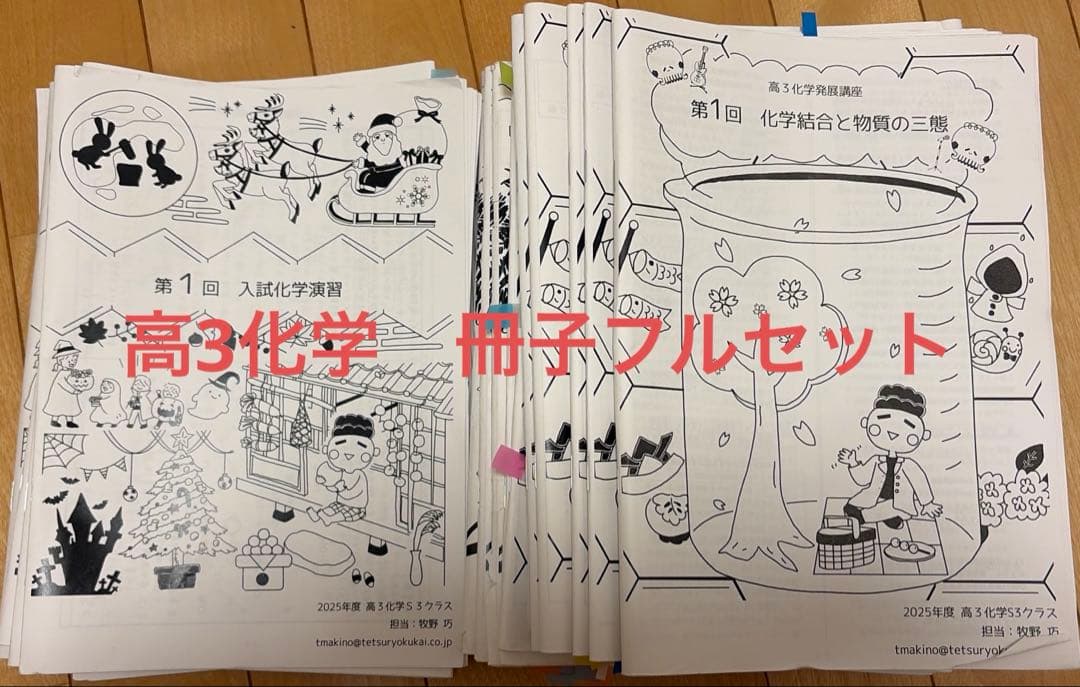 第1回 入試化学演習
2025年度 高3化学S3クラス
担当:牧野 巧
tmakino@tetsuryokukai.co.jp
高3化学発展講座
第1回 化学結合と物質の三態
2025年度 高3化学S3クラス
担当:牧野 巧
tmakino@tetsuryok
高3化学 冊子フルセット